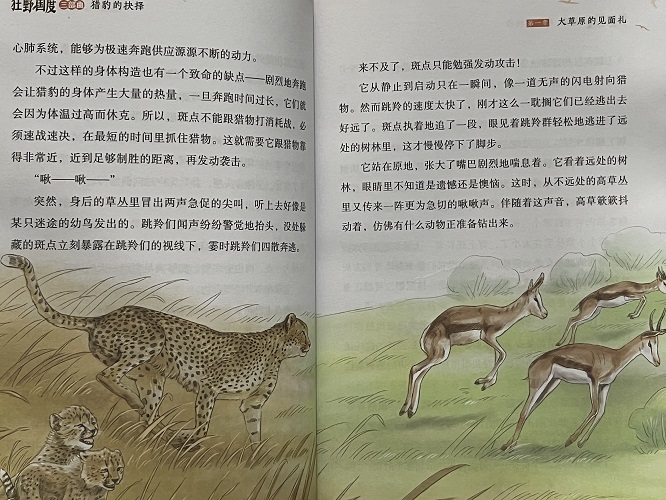 狂野国度 三部曲 猎豹的抉择
心肺系统，能够为极速奔跑供应源源不断的动力。
不过这样的身体构造也有一个致命的缺点——剧烈地奔跑
会让猎豹的身体产生大量的热量，一旦奔跑时间过长，它们就
会因为体温过高而休克。所以，斑点不能跟猎物打消耗战，必
须速战速决，在最短的时间里抓住猎物。这就需要它跟猎物靠
得非常近，近到足够制胜的距离，再发动袭击。
“啾——啾——”
突然，身后的草丛里冒出两声急促的尖叫，听上去好像是
某只迷途的幼鸟发出的。跳羚们闻声纷纷警觉地抬头，没处躲
藏的斑点立刻暴露在跳羚们的视线下，霎时跳羚们四散奔逃。
第一章 大草原的见面礼
来不及了，斑点只能勉强发动攻击！
它从静止到启动只在一瞬间，像一道无声的闪电射向猎
物。然而跳羚的速度太快了，刚才这么一耽搁它们已经逃出去
好远了。斑点执着地追了一段，眼见着跳羚群轻松地逃进了远
处的树林里，这才慢慢停下了脚步。
它站在原地，张大了嘴巴剧烈地喘息着。它看着远处的树
林，眼睛里不知道是遗憾还是懊恼。这时，从不远处的高草丛
里又传来一阵更为急切的啾啾声。伴随着这声音，高草簌簌抖
动着，仿佛有什么动物正准备钻出来。